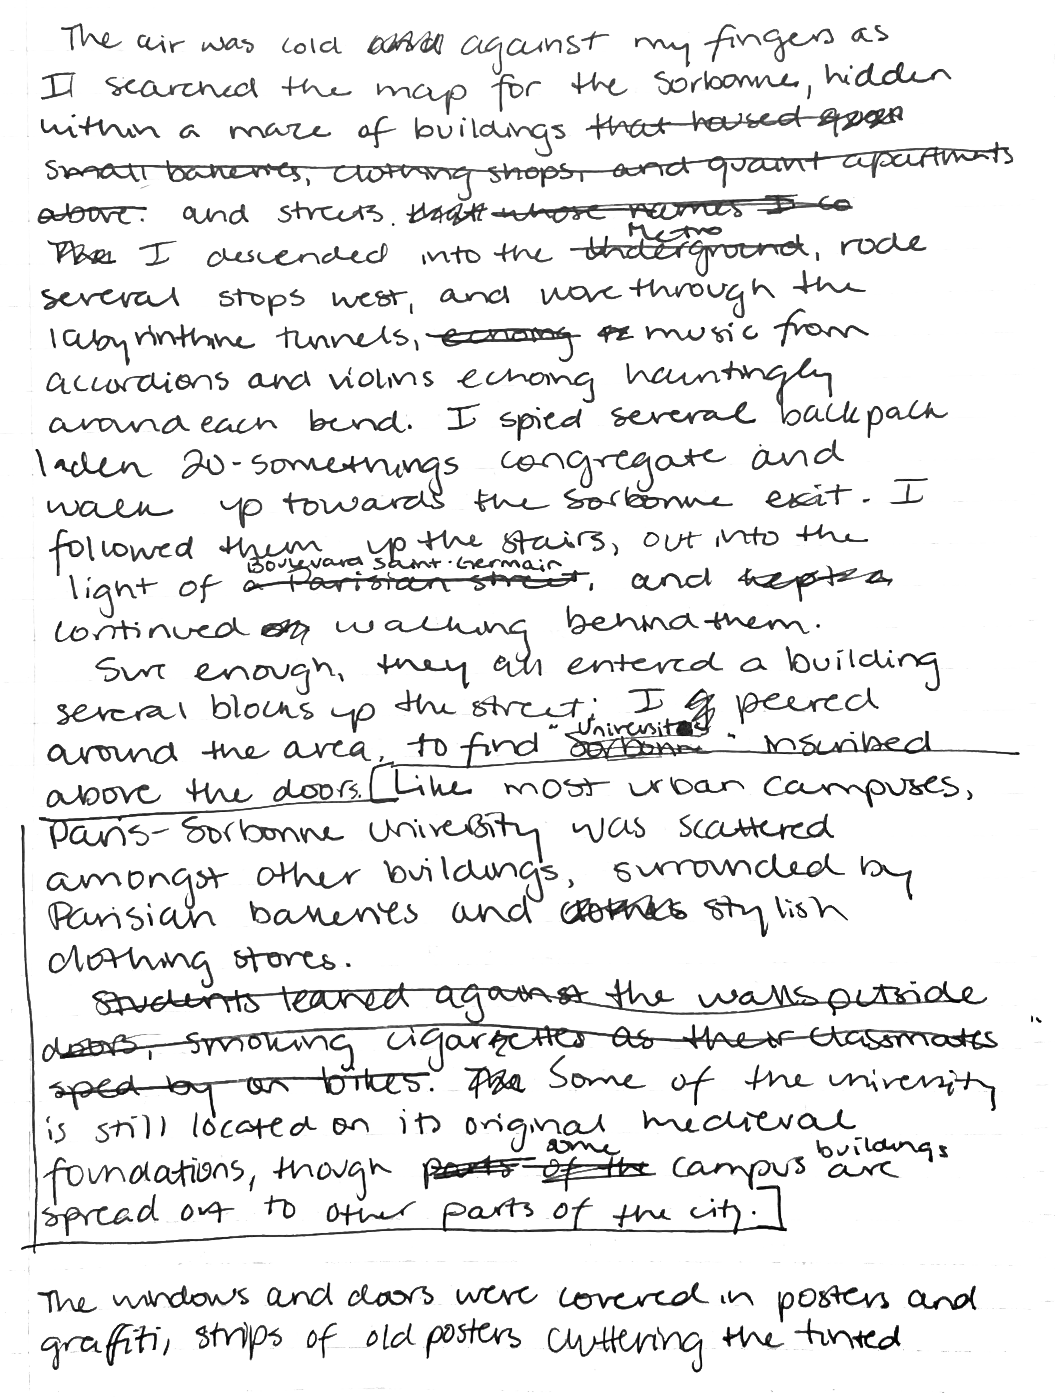 The air was cold against my fingers as
I searched the map for the Sorbonne, hidden
within a maze of buildings that housed
small bakeries, clothing shops, and quaint apartments
above. and streets. whose names I co
Metro
The I descended into the Underground, rode
several stops west, and wove through the
labyrinthine tunnels, echoing music from
accordions and violins echoing hauntingly
around each bend. I spied several backpack
laden 20-somethings congregate and
walk up towards the Sorbonne exit. I
followed them up the stairs, out into the
Boulevard Saint-Germain
light of a Parisian street, and kept
continued on walking behind them.
Sure enough, they all entered a building
several blocks up the street; I peered
"Universitas"
around the area, to find Sorbonne inscribed
above the doors. [Like most urban campuses,
Paris-Sorbonne University was scattered
amongst other buildings, surrounded by
Parisian bakeries and clothes stylish
clothing stores.
Students leaned against the walls outside
doors, smoking cigarettes as their classmates
sped by on bikes. The Some of the university
is still located on its original medieval
some buildings
foundations, though parts of the campus are
spread out to other parts of the city.]
The windows and doors were covered in posters and
graffiti, strips of old posters cluttering the tinted